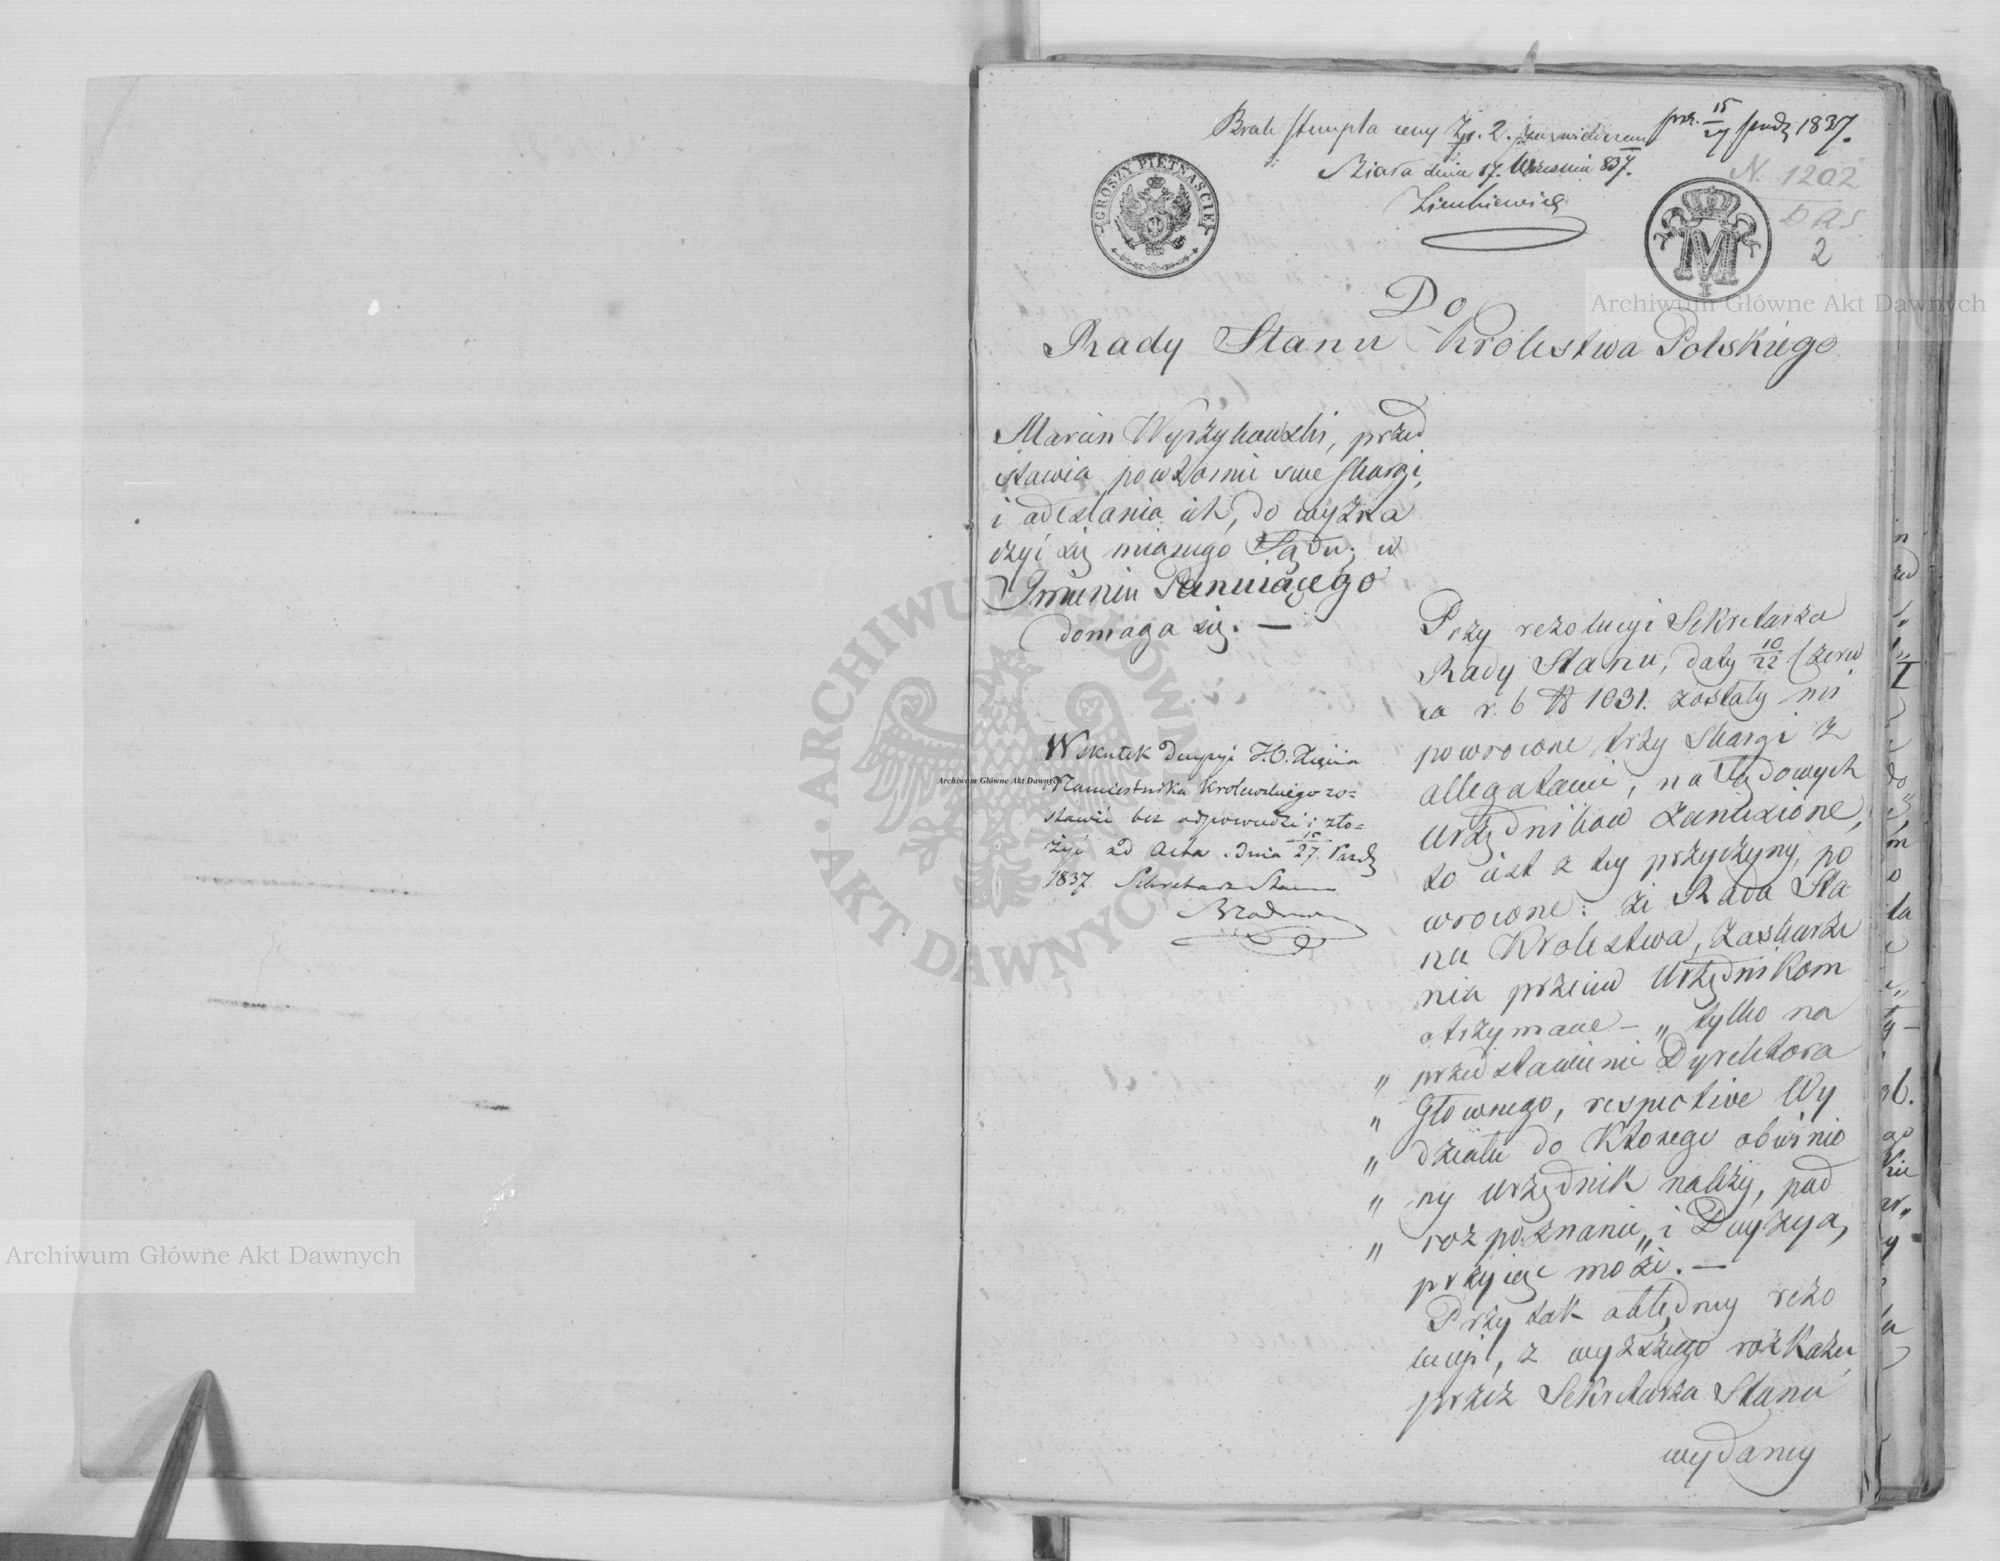 Brak stempla ceny Zp. 2. zaswiadczam
Biała dnia 17. Wrzesnia 837.
Zienkiewicz
prz. 15/27 Pazdz 1837.
N. 1202
2
GROSZY PIĘTNAŚCIE
M
I
Do
Rady Stanu Krolestwa Polskiego
Marcin Wyrzykowski, przed
stawia powtornie swe skargi,
i odesłania ich, do wyzna
czyć się maiącego Sądu; w
Imieniu Panuiącego
domaga się. —
Wskutek Decyzji J.O. Xięcia
Namiestnika Krolewskiego zo=
stawić bez odpowiedzi i zło=
żyć ad Acta. dnia 15/27. Pazdz
1837 Sekretarz Stanu
Przy rezolucyi Sekretarza
Rady Stanu, daty 10/22 Czerw
ca r. b N 1031. zostały mi
powrocone trzy skargi z
allegatami, na Sądowych
Urzędnikow zaniesione,
to iest z tey przyczyny, po
wrocone: że Rada Sta
nu Krolestwa, zaskarże
nia przeciw Urzędnikom
otrzymane — „ tylko na
„ przedstawienie Dyrektora
„ Głownego, respective Wy
„ działu do Ktorego obwinio
„ ny urzędnik należy, pod
„ rozpoznanie „ i Decyzya,
przyiąć może. —
Przy tak obłędney rezo
lucyi, z wyższego rozkazu
przez Sekretarza Stanu
wydaney
Archiwum Główne Akt Dawnych
Archiwum Główne Akt Dawnych
Archiwum Główne Akt Dawnych
ARCHIWUM GŁÓWNE AKT DAWNYCH